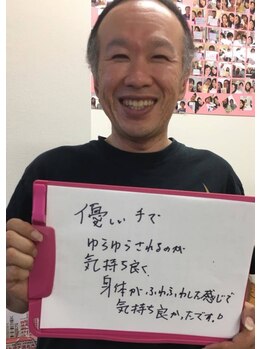 優しい手で
ゆらゆらされるのが
気持ち良く
身体がふわふわした感じで
気持ち良かったです。